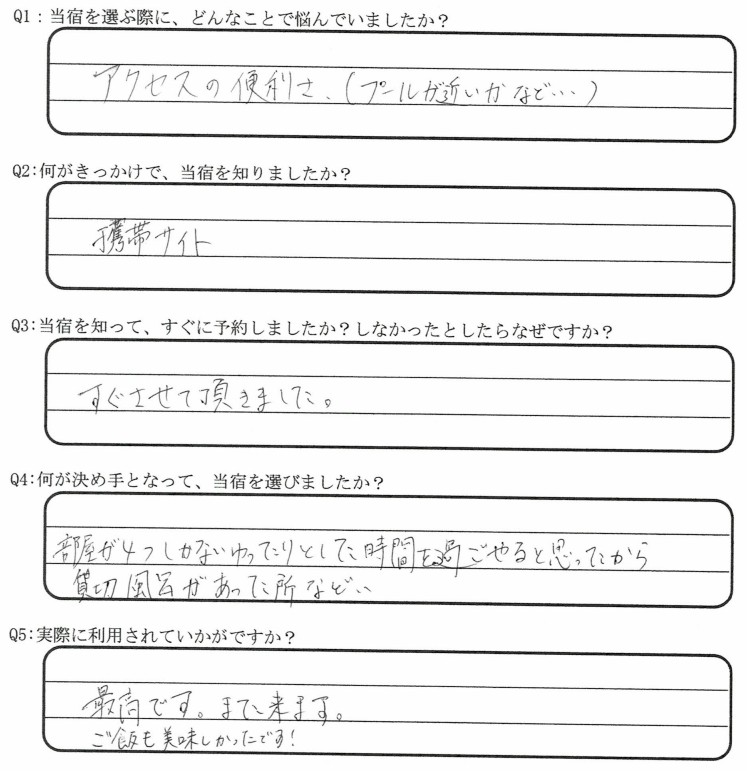 Q1：当宿を選ぶ際に、どんなことで悩んでいましたか？
アクセスの便利さ、(プールが近いかなど…)
Q2：何がきっかけで、当宿を知りましたか？
携帯サイト
Q3：当宿を知って、すぐに予約しましたか？しなかったとしたらなぜですか？
すぐさせて頂きました。
Q4：何が決め手となって、当宿を選びましたか？
部屋が4つしかないゆったりとした時間を過ごせると思ったから
貸切風呂があった所など…
Q5：実際に利用されていかがですか？
最高です。また来ます。
ご飯も美味しかったです！